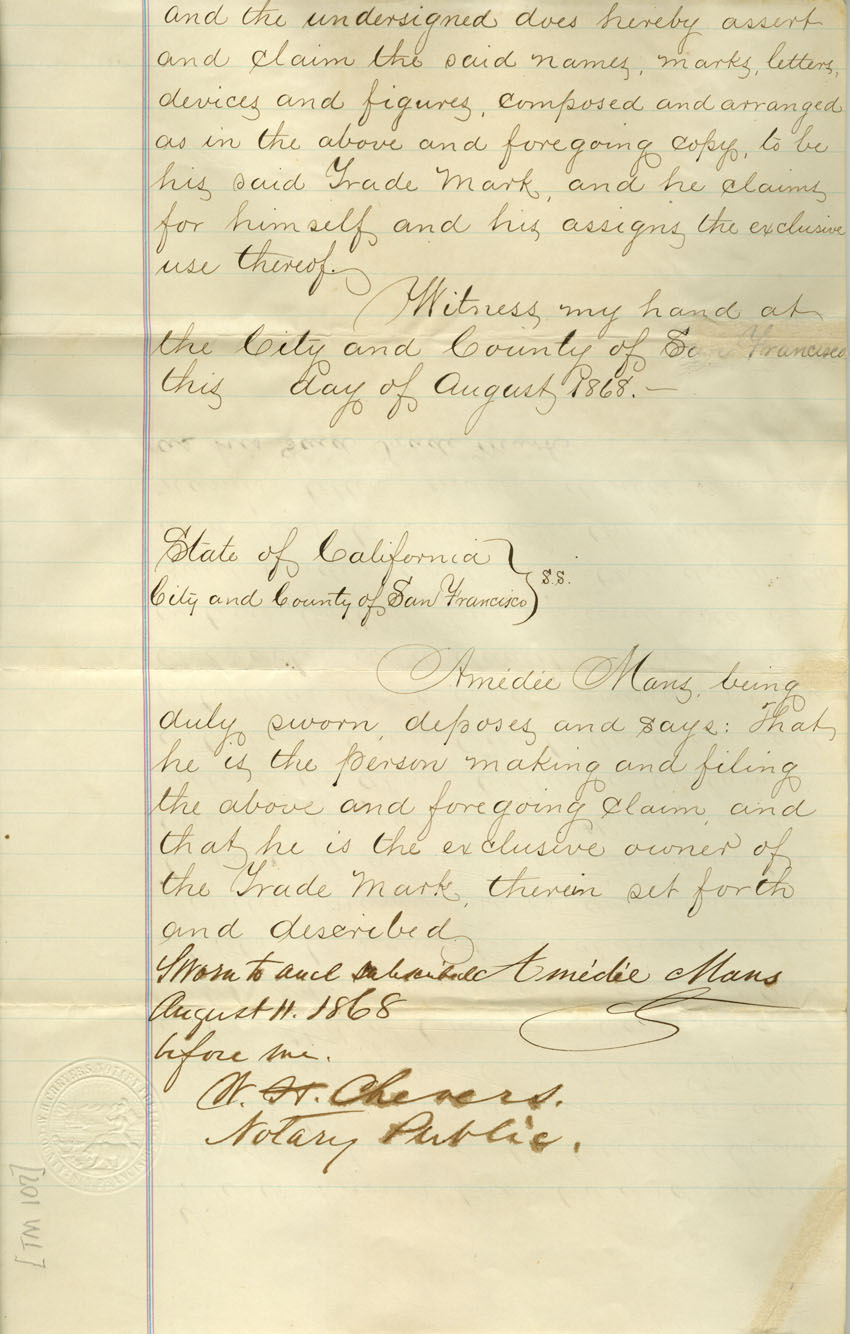 and the undersigned does hereby assert
and claim the said names, marks, letters,
devices and figures, composed and arranged
as in the above and foregoing copy, to be
his said Trade Mark, and he claims
for himself and his assigns the exclusive
use thereof.
Witness my hand at
the City and County of San Francisco
this day of August 1868. —
State of California
City and County of San Francisco } S.S.
Amédée Mans, being
duly sworn, deposes and says: That
he is the person making and filing
the above and foregoing claim, and
that he is the exclusive owner of
the Trade Mark, therein set forth
and described
Sworn to and subscribed Amédée Mans
August 11. 1868
before me.
W. H. Chevers.
Notary Public.
[TM 107]